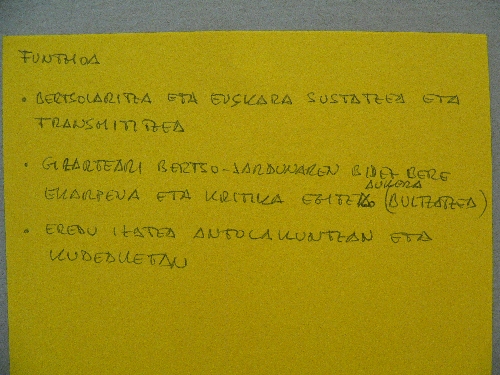 FUNTZIOA
• BERTSOLARITZA ETA EUSKARA SUSTATZEA ETA
TRANSMITITZEA
• GIZARTEARI BERTSO-JARDUNAREN BIDEZ BERE
EKARPENA ETA KRITIKA EGITEKO AUKERA (BULTZATZEA)
• EREDU IZATEA ANTOLAKUNTZAN ETA
KUDEAKETAN